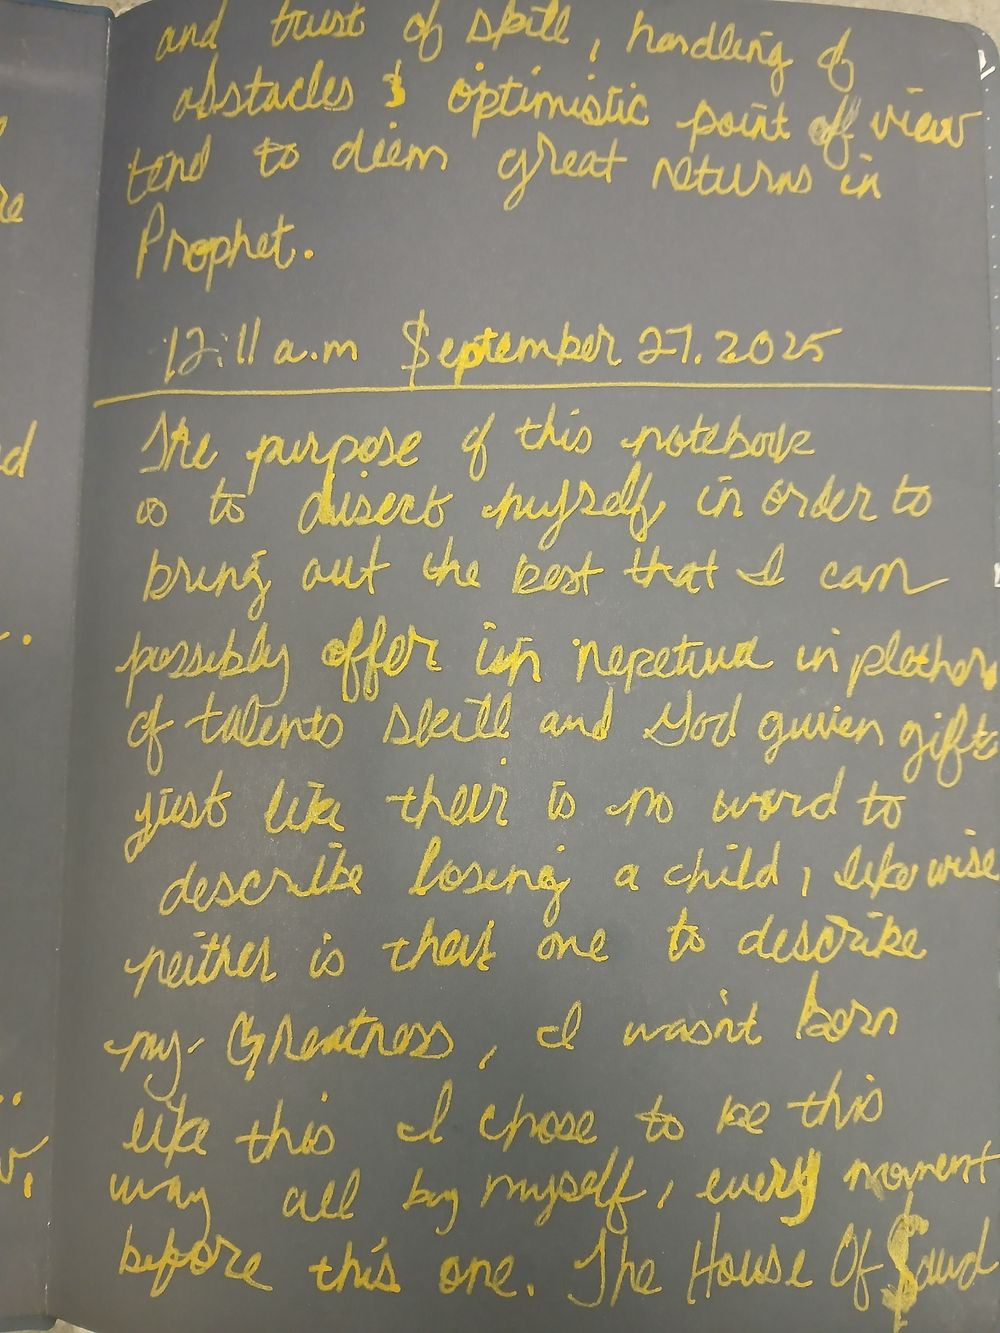 and trust of skill, handling of
obstacles & optimistic point off view
tend to diem great returns in
Prophet.
12:11 a.m $eptember 27.2025
The purpose of this notebook
is to disect myself in order to
bring out the best that I can
possibly offer in in plethora
of talents skill and God given gifts
just like their is no word to
describe losing a child, likewise
neither is that one to describe
my Greatness, I wasn't born
like this I chose to be this
way all by myself, every moment
before this one. The House Of $aud